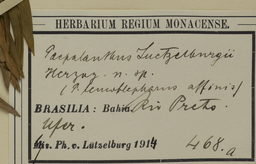 HERBARIUM REGIUM MONACENSE.
Paepalanthus Luetzelburgii
Herzog. n. sp.
(P. affinis)
BRASILIA: Bahia. Rio Preto.
Ufer.
Dr. Ph. v. Lützelburg 1914 468.a